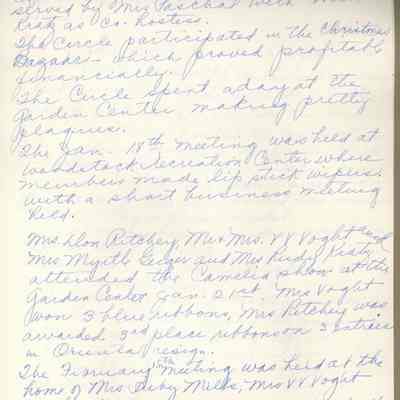 served by Mrs Paschal with Mrs
Kratz as Co. hostess.
The Circle participated in the Christmas
Bazaar - which proved profitable
financially.
The Circle spent a day at the
Garden Center making pretty
plaques.
The Jan. 18th meeting was held at
Woodstock Recreation Center where
members made lip stick wipers.
with a short business meeting
held.
Mrs. Don Ritchey, Mr & Mrs. VV Voght and
Mrs Myrtle Geiger and Mrs Rudy Kratz
attended the Camelia show at the
Garden Center Jan. 21st. Mrs Voght
won 3 blue ribbons, Mrs Ritchey was
awarded 3rd place ribbons on 3 entries
in Oriental design.
The February meeting was held at the
home of Mrs Mills, Mrs VV Voght